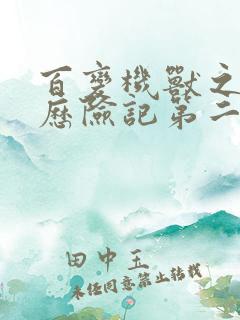 百變機獸之
歷險記第二
田中玉
未经同意禁止转载